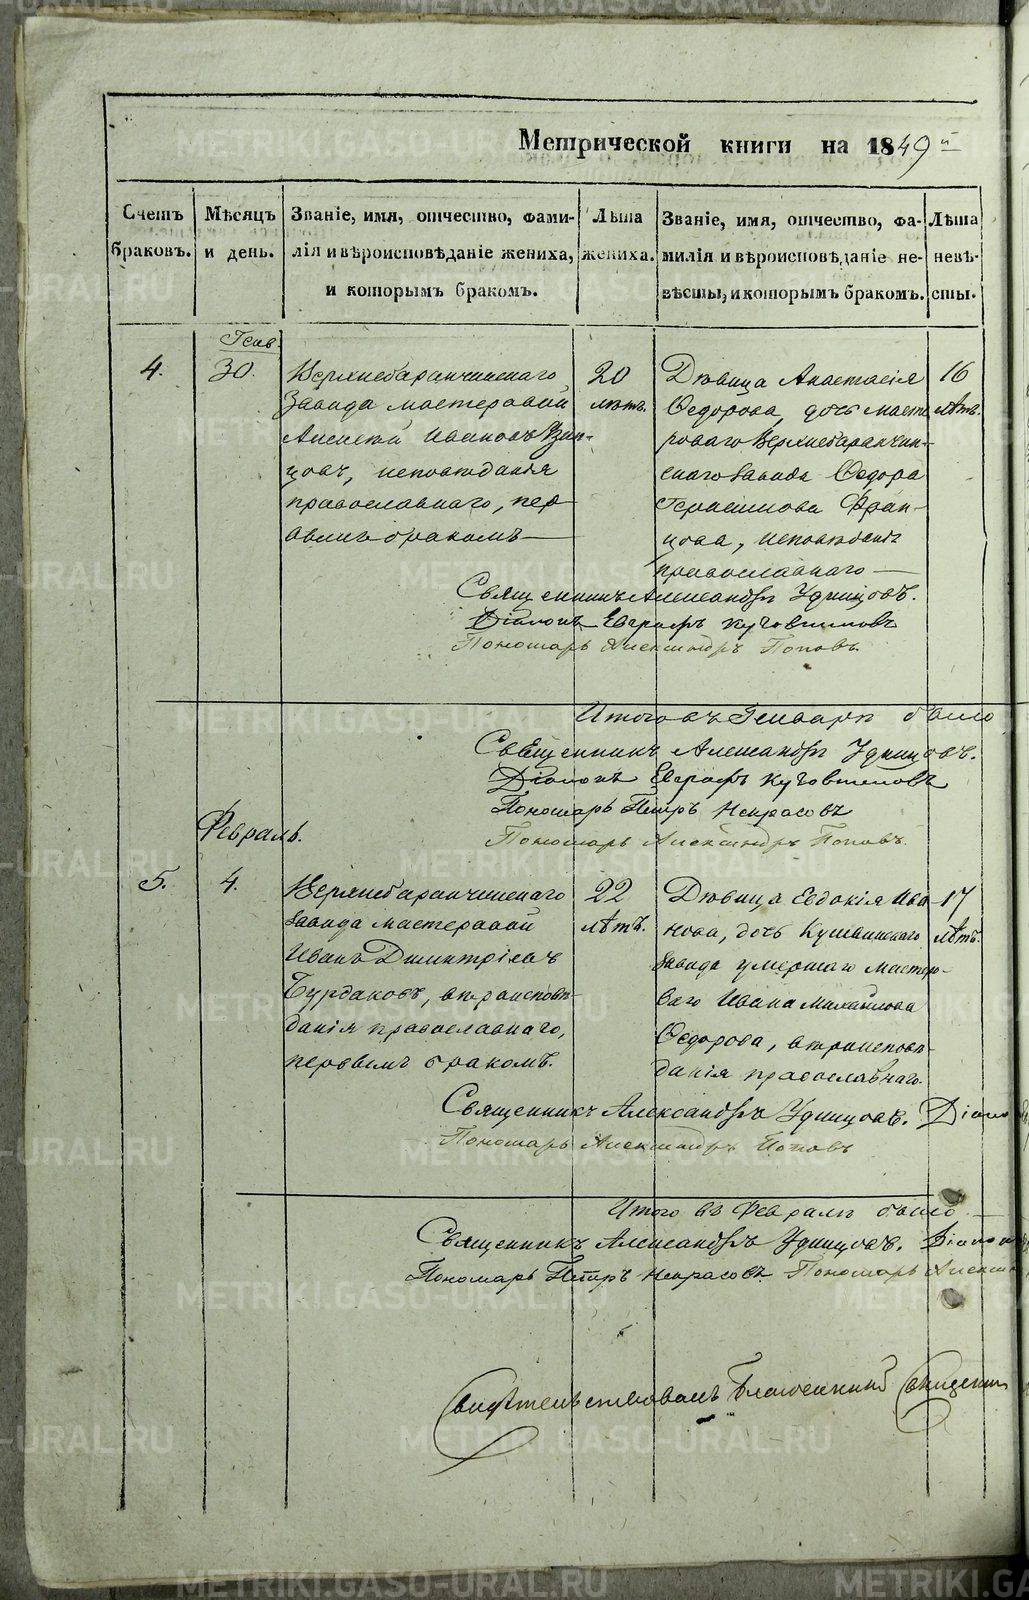 Метрической книги на 1849й
Счетъ браковъ.
Мѣсяцъ и день.
Званіе, имя, отчество, фами-
лія и вѣроисповѣданіе жениха,
и которымъ бракомъ.
Лѣта
жениха.
Званіе, имя, отчество, фа-
милія и вѣроисповѣданіе не-
вѣсты, и которымъ бракомъ.
Лѣта
невѣ-
сты.
Генв.
4.
30.
Верхнебаранчинскаго
завода мастеровой
Алексѣй Ивановъ
цовъ, исповѣданія
православнаго, пер
вымъ бракомъ
20
лѣтъ.
Дѣвица Анастасія
Ѳедорова, дочь масте
роваго Верхнебаранчин-
скаго завода Ѳедора
Герасимова Фран-
цова, исповѣданія
православнаго
16
лѣтъ.
Священникъ Александръ Удинцовъ.
Діаконъ Евграфъ
Пономарь Александръ Поповъ.
Итого въ Генварѣ было
Священникъ Александръ Удинцовъ.
Діаконъ Евграфъ
Пономарь Петръ Некрасовъ
Пономарь Александръ Поповъ.
Февраль.
5.
4.
Верхнебаранчинскаго
завода мастеровой
Иванъ Димитріевъ
Бурдаковъ, вѣроисповѣ-
данія православнаго,
первымъ бракомъ.
22
лѣтъ.
Дѣвица Евдокія Ива
нова, дочь Кушвинскаго
завода умершаго мастеро-
ваго Ивана Михайлова
Ѳедорова, вѣроисповѣ-
данія православнаго.
17
лѣтъ.
Священникъ Александръ Удинцовъ. Діако
Пономарь Александръ Поповъ
Итого въ Февралѣ было
Священникъ Александръ Удинцовъ. Діакон
Пономарь Петръ Некрасовъ. Пономарь Алексан
Свидѣтельствовалъ Благочинный Священни
METRIKI.GASO-URAL.RU